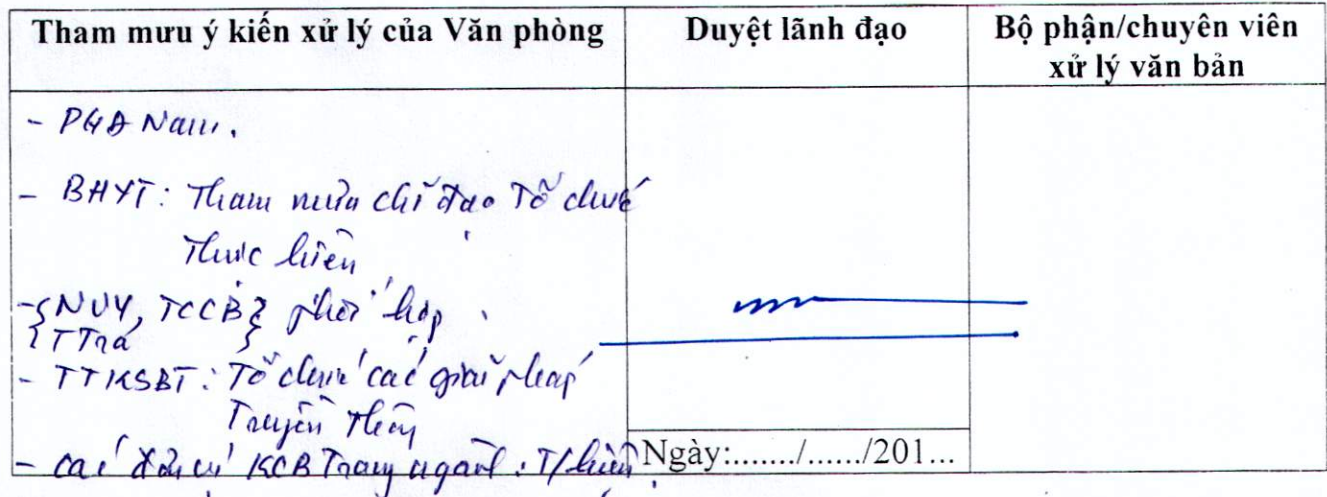 Tham mưu ý kiến xử lý của Văn phòng
Duyệt lãnh đạo
Bộ phận/chuyên viên
xử lý văn bản
- PGĐ Nam.
- BHYT: Tham mưu chỉ đạo Tổ chức
Thực hiện
- {NVY, TCCB} phối hợp
{TTra}
- TTKSBT: Tổ chức các giải pháp
Truyền thông
- Các đơn vị KCB Trong ngành: T/hiện.
Ngày:......./....../201...